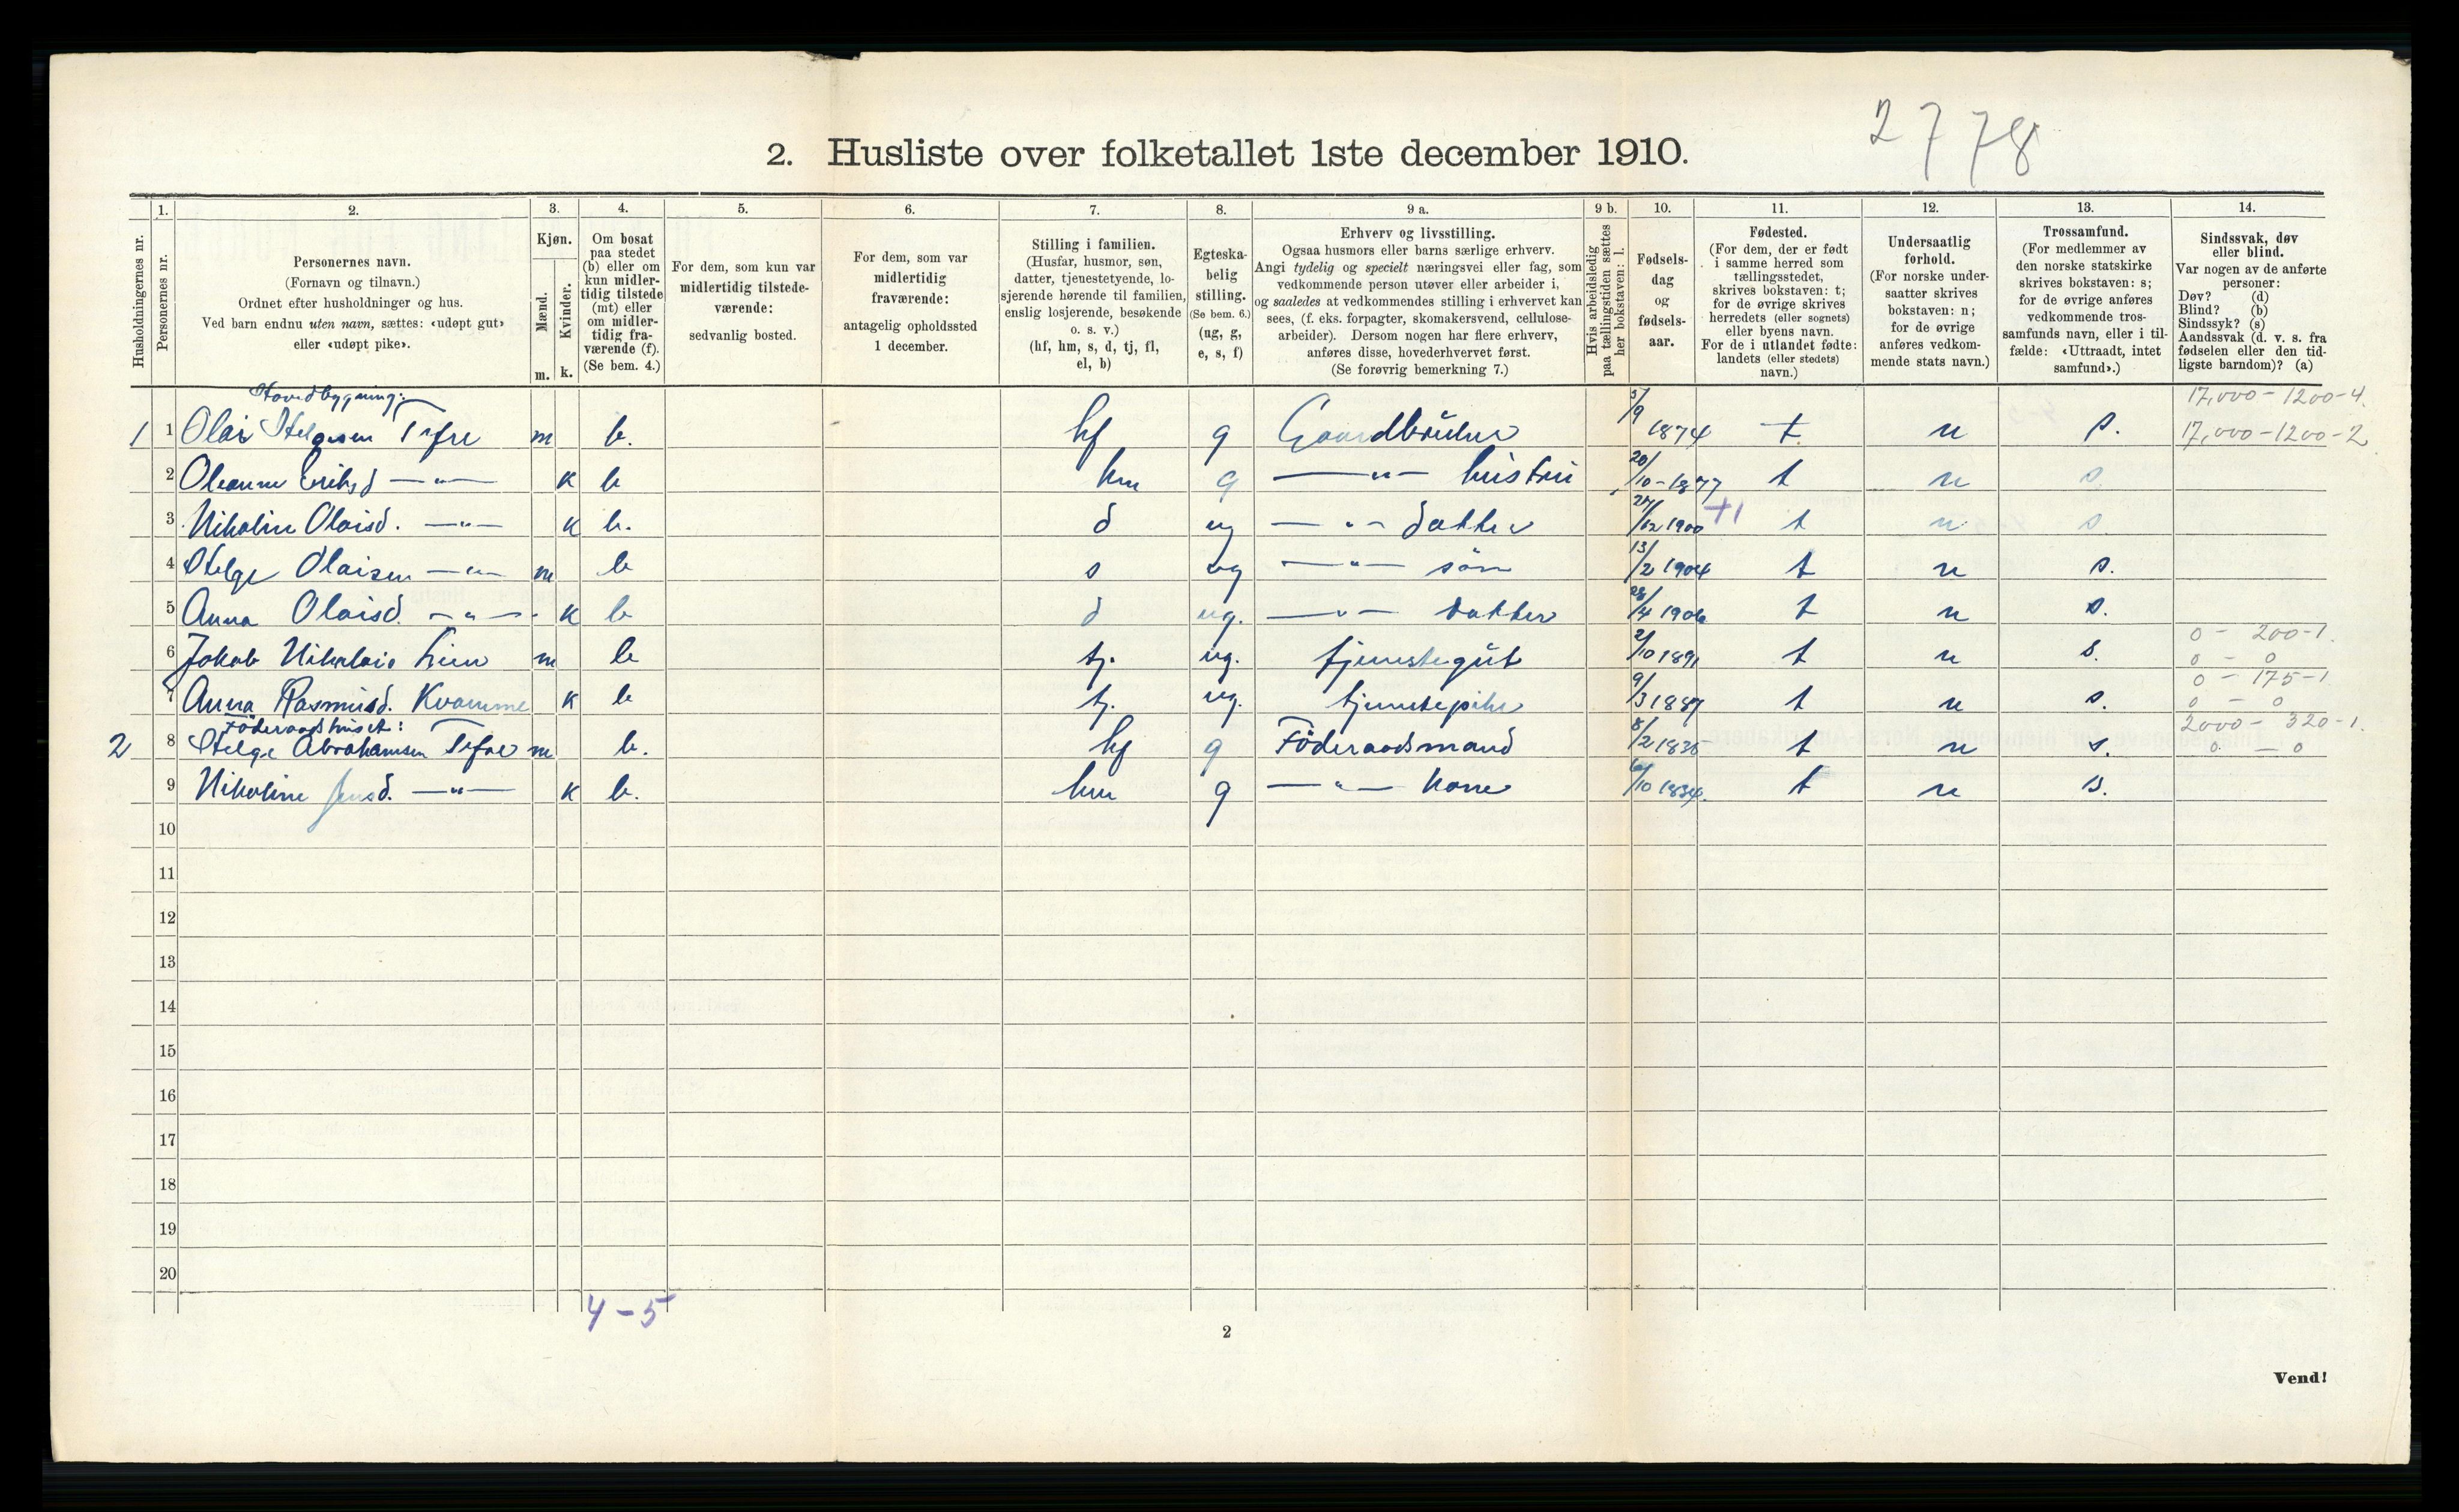 2778
2. Husliste over folketallet 1ste december 1910.
1. 2. 3. 4. 5. 6. 7. 8. 9 a. 9 b. 10. 11. 12. 13. 14.
Husholdningernes nr.
Personernes nr.
Personernes navn.
(Fornavn og tilnavn.)
Ordnet efter husholdninger og hus.
Ved barn endnu uten navn, sættes: «udøpt gut»
eller «udøpt pike».
Kjøn.
Mænd.
Kvinder.
m. k.
Om bosat
paa stedet
(b) eller om
kun midler-
tidig tilstede
(mt) eller
om midler-
tidig fra-
værende (f).
(Se bem. 4.)
For dem, som kun var
midlertidig tilstede-
værende:
sedvanlig bosted.
For dem, som var
midlertidig
fraværende:
antagelig opholdssted
1 december.
Stilling i familien.
(Husfar, husmor, søn,
datter, tjenestetyende, lo-
sjerende hørende til familien,
enslig losjerende, besøkende
o. s. v.)
(hf, hm, s, d, tj, fl,
el, b)
Egteska-
belig
stilling.
(Se bem. 6.)
(ug, g,
e, s, f)
Erhverv og livsstilling.
Ogsaa husmors eller barns særlige erhverv.
Angi tydelig og specielt næringsvei eller fag, som
vedkommende person utøver eller arbeider i,
og saaledes at vedkommendes stilling i erhvervet kan
sees, (f. eks. forpagter, skomakersvend, cellulose-
arbeider). Dersom nogen har flere erhverv,
anføres disse, hovederhvervet først.
(Se forøvrig bemerkning 7.)
Hvis arbeidsledig
paa tællingstiden sættes
her bokstaven: l.
Fødsels-
dag
og
fødsels-
aar.
Fødested.
(For dem, der er født
i samme herred som
tællingsstedet,
skrives bokstaven: t;
for de øvrige skrives
herredets (eller sognets)
eller byens navn.
For de i utlandet fødte:
landets (eller stedets)
navn.)
Undersaatlig
forhold.
(For norske under-
saatter skrives
bokstaven: n;
for de øvrige
anføres vedkom-
mende stats navn.)
Trossamfund.
(For medlemmer av
den norske statskirke
skrives bokstaven: s;
for de øvrige anføres
vedkommende tros-
samfunds navn, eller i til-
fælde: «Uttraadt, intet
samfund».)
Sindssvak, døv
eller blind.
Var nogen av de anførte
personer:
Døv? (d)
Blind? (b)
Sindssyk? (s)
Aandssvak (d. v. s. fra
fødselen eller den tid-
ligste barndom)? (a)
Hovedbygning: 17,000 - 1200-4.
1 1 Olai Helgesen Tefre m b. hf g Gaardbruker 5/9 1874 t. n s. 17,000 - 1200-2
2 Oleanne Eriksd —"— k b hm g —"— hustru 20/10-1877 t n s.
3 Nikoline Olaisd. —"— k b. d ug —"— datter 27/12 1900 +1 t n s
4 Helge Olaisen —"— m b s ug —"— søn 13/2 1904 t n s.
5 Anna Olaisd. —"— k b d ug. —"— datter 28/4 1906 t n s.
0 - 200-1.
6 Jakob Nikolais Lien m b tj. ug. tjenestegut 2/10 1891 t n s. 0 - 0
0 - 175-1
7 Anna Rasmusd. Kvamme k b tj. ug. tjenestepike 9/3 1887 t n s. 0 - 0
Föderaadshuset: 2000 - 320-1.
2 8 Helge Abrahamsen Tefre m b. hf g Föderaadsmand 8/2 1836 t n s. 0 - 0
9 Nikoline Jensd. —"— k b. hm g —"— kone 6/10 1834. t n s.
10
11
12
13
14
15
16
17
18
19
20
4-5
2
Vend!